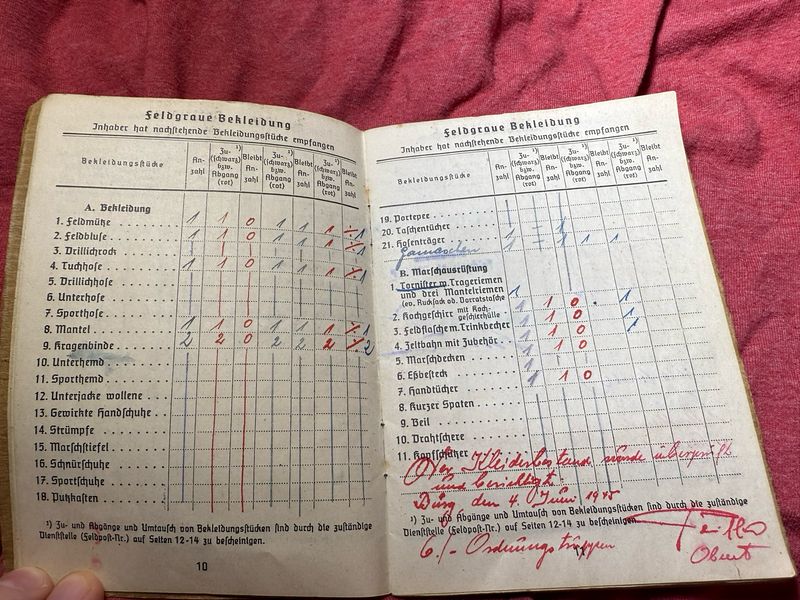 Feldgraue Bekleidung
Inhaber hat nachstehende Bekleidungsstücke empfangen
Bekleidungsstücke An-zahl Zu- ¹) (schwarz) bzw. Abgang (rot) Bleibt An-zahl Zu- ¹) (schwarz) bzw. Abgang (rot) Bleibt An-zahl Zu- ¹) (schwarz) bzw. Abgang (rot) Bleibt An-zahl
A. Bekleidung
1. Feldmütze 1 1 0 1 1 1 1
2. Feldbluse 1 1 0 1 1 1 1
3. Drillichrock
4. Tuchhose 1 1 0 1 1 1 1
5. Drillichhose
6. Unterhose
7. Sporthose
8. Mantel 1 1 0 1 1 1 1
9. Kragenbinde 2 2 0 2 2 2 2
10. Unterhemd
11. Sporthemd
12. Unterjacke wollene
13. Gewirkte Handschuhe
14. Strümpfe
15. Marschstiefel
16. Schnürschuhe
17. Sportschuhe
18. Putzkasten
¹) Zu- und Abgänge und Umtausch von Bekleidungsstücken sind durch die zuständige
Dienststelle (Feldpost-Nr.) auf Seiten 12-14 zu bescheinigen.
10
Feldgraue Bekleidung
Inhaber hat nachstehende Bekleidungsstücke empfangen
Bekleidungsstücke An-zahl Zu- ¹) (schwarz) bzw. Abgang (rot) Bleibt An-zahl Zu- ¹) (schwarz) bzw. Abgang (rot) Bleibt An-zahl Zu- ¹) (schwarz) bzw. Abgang (rot) Bleibt An-zahl
19. Portepee
20. Taschentücher
21. Hosenträger
Gamaschen
B. Marschausrüstung
1. Tornister m. Trageriemen
und drei Mantelriemen
(ev. Rucksack od. Vorratstasche 1
2. Kochgeschirr mit Koch-
geschirrhülle 1 1 0 1
3. Feldflasche m. Trinkbecher 1 1 0 1
4. Zeltbahn mit Zubehör 1 1 0 1
5. Marschdecken 1
6. Eßbesteck 1 1 0
7. Handtücher
8. Kurzer Spaten
9. Beil
10. Drahtschere
11. Kopfschützer
Der Kleiderbestand wurde überprüft
und berichtigt.
den 4. Juni 1945
¹) Zu- und Abgänge und Umtausch von Bekleidungsstücken sind durch die zuständige
Dienststelle (Feldpost-Nr.) auf Seiten 12-14 zu bescheinigen.
6./- Ordnungstruppen
Oberst